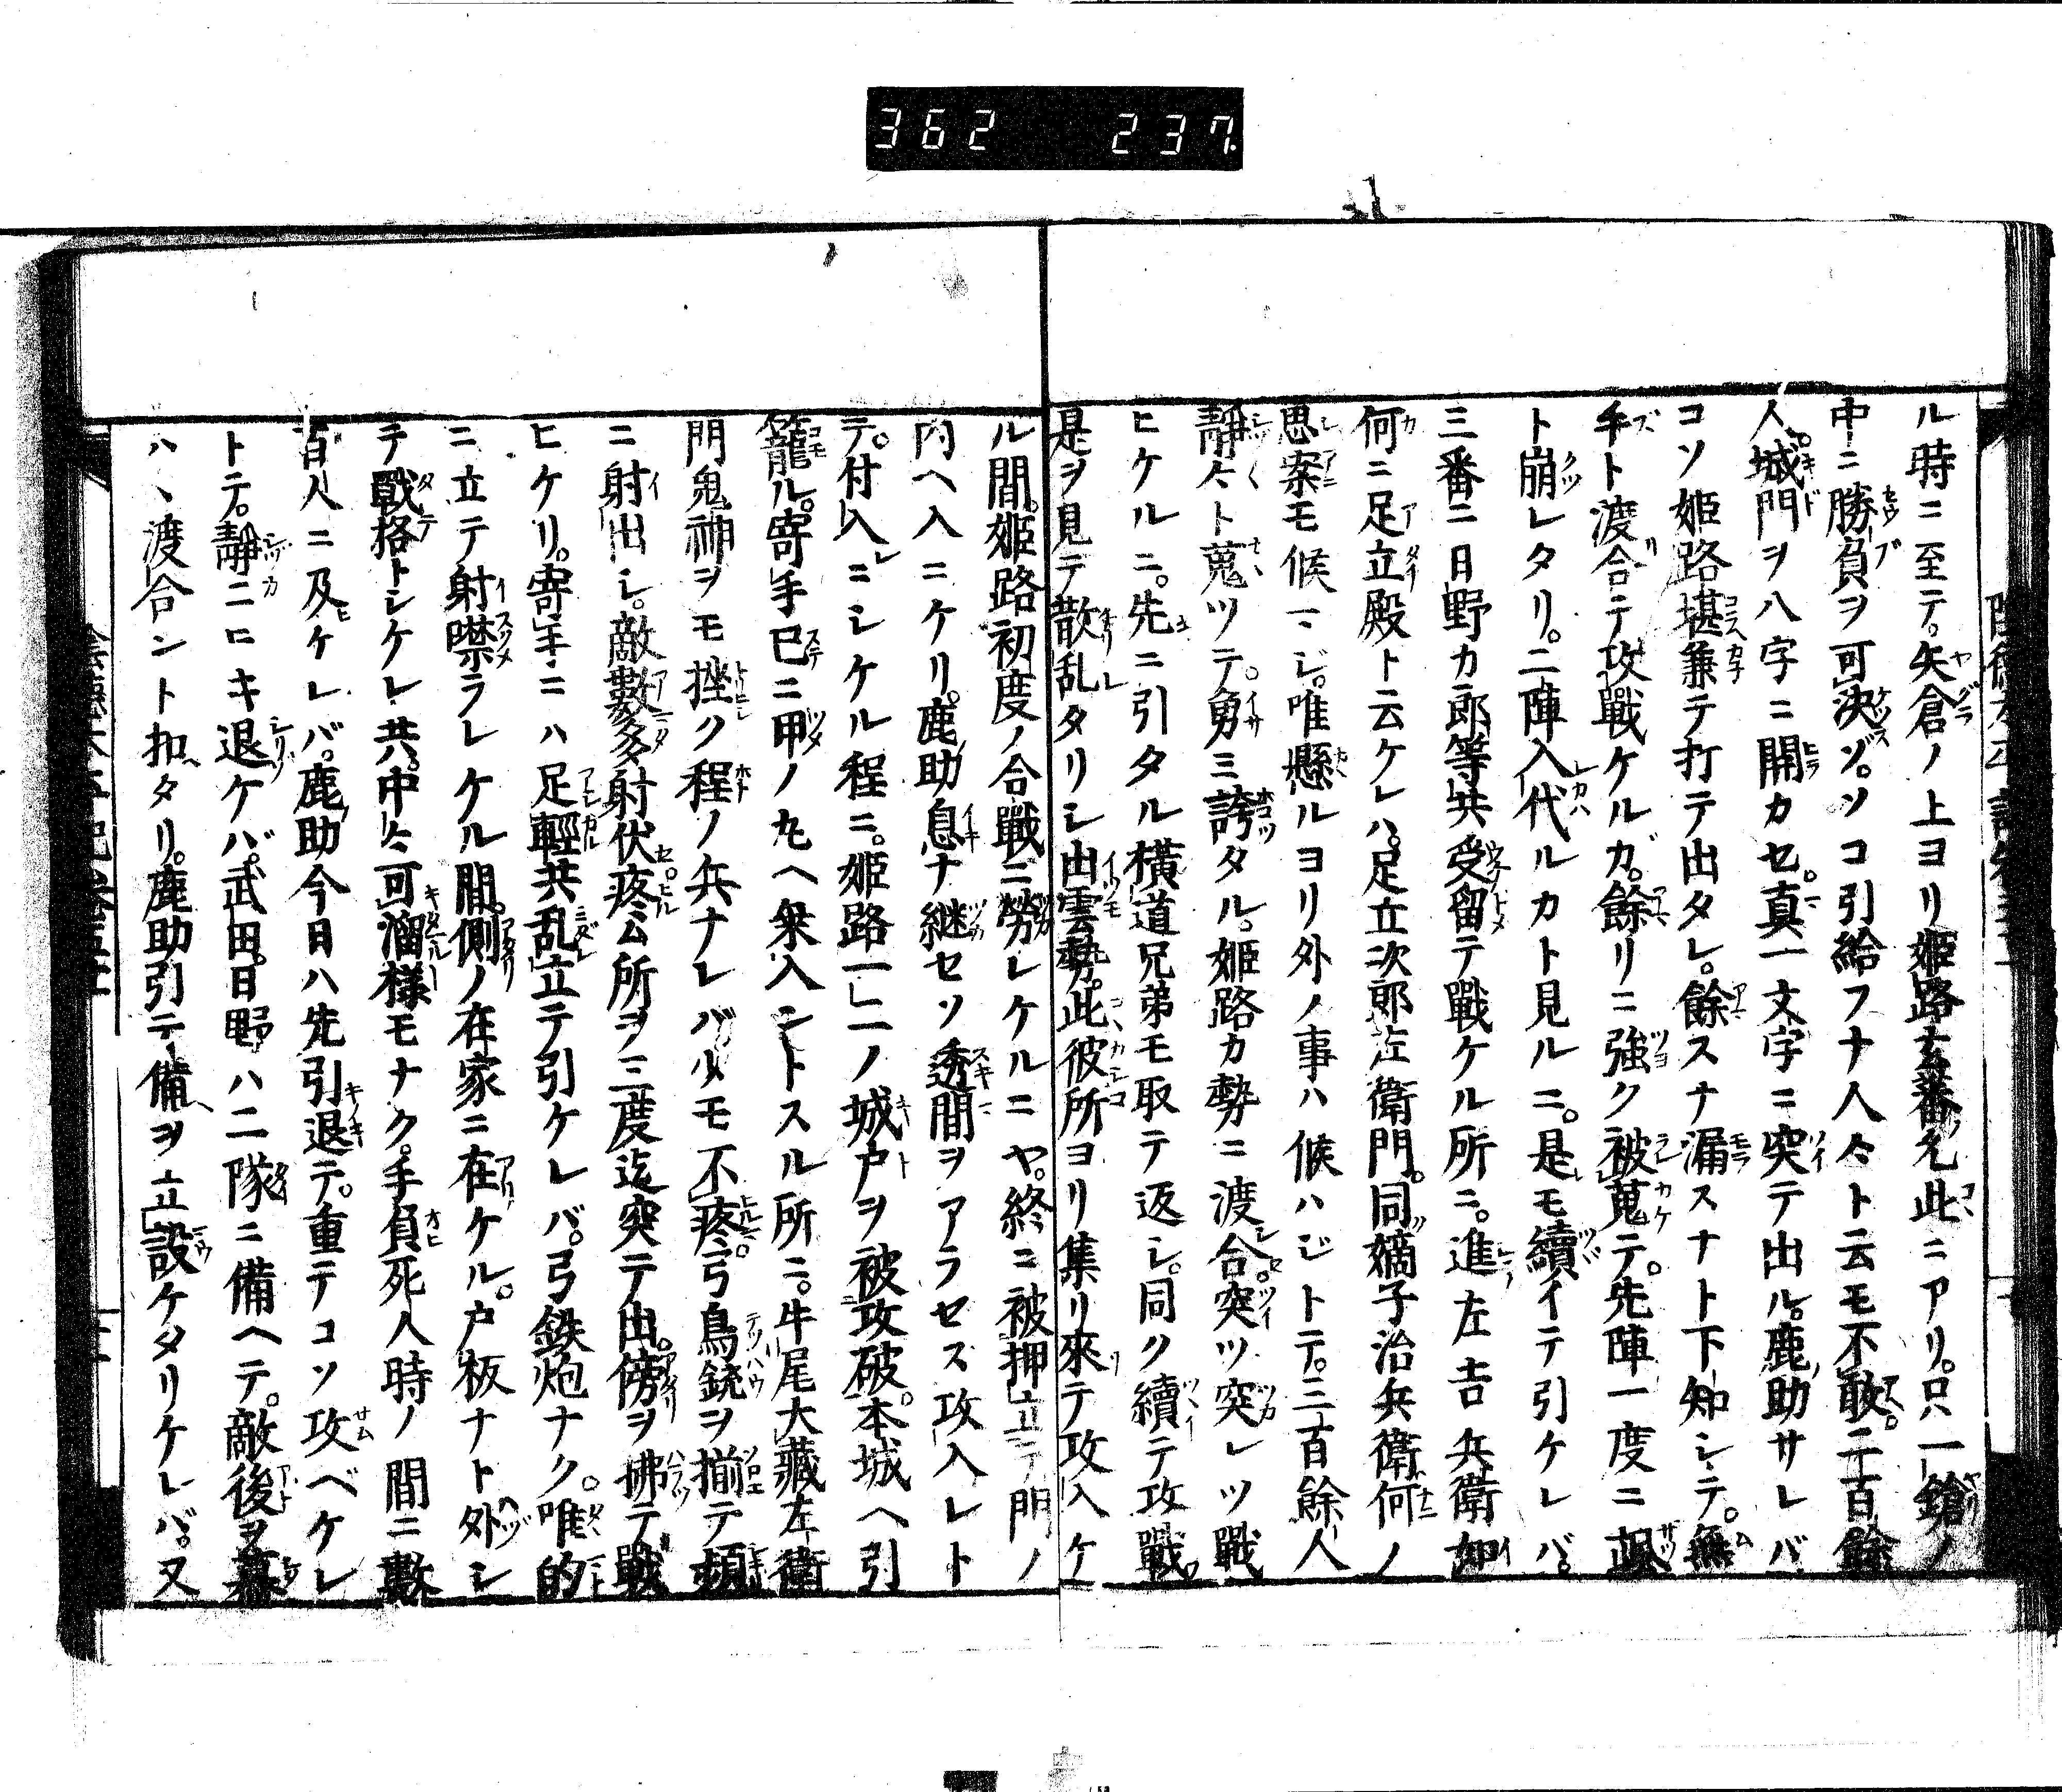 362 237
ル時ニ至テ。矢倉ノ上ヨリ姫路玄番允此ニアリ。只一鎗ノ
中ニ勝負ヲ可決ゾ。ソコ引給フナ人々ト云モ不敢。二百餘
人。城門ヲ八字ニ開カセ。真一文字ニ突テ出ル。鹿助サレバ
コソ姫路堪兼テ打テ出タレ。餘スナ漏スナト下知シテ。無
手ト渡合テ攻戰ケルガ。餘リニ強ク被蒐テ。先陣一度ニ颯
ト崩レタリ。二陣入代ルカト見ルニ。是モ續イテ引ケレバ。
三番ニ日野カ郎等共受留テ戰ケル所ニ。進左吉兵衛如
何ニ足立殿ト云ケレハ。足立次郎左衛門。同嫡子治兵衛何ノ
思案モ候ヘジ。唯懸ルヨリ外ノ事ハ候ハジトテ。三百餘人
靜々ト蒐ツテ。勇ミ誇タル。姫路カ勢ニ渡合。突ツ突レツ戰
ヒケルニ。先ニ引タル横道兄弟モ取テ返シ。同ク續テ攻戰。
是ヲ見テ散乱タリシ出雲勢。此彼所ヨリ集リ來テ攻入ケ
ル間。姫路初度ノ合戰ニ勞レケルニヤ。終ニ被押立テ門ノ
内ヘ入ニケリ。鹿助息ナ継セソ透間ヲアラセス攻入レト
テ。付入ニシケル程ニ。姫路一二ノ城戸ヲ被攻破。本城ヘ引
籠ル。寄手已ニ甲ノ丸ヘ乗入ントスル所ニ。牛尾大藏左衛
門鬼神ヲモ挫ク程ノ兵ナレバ少モ不疼。弓鳥銃ヲ揃テ頻
ニ射出シ。敵數多射伏疼ム所ヲ三度迄突テ出。傍ヲ拂テ戰
ヒケリ。寄手ニハ足輕共乱立テ引ケレバ。弓鉄炮ナク。唯的
ニ立テ射噤ラレケル間。側ノ在家ニ在ケル。戸板ナト外シ
テ戰格トシケレ共。中々可溜様モナク。手負死人時ノ間ニ數
百人ニ及ケレバ。鹿助今日ハ先引退テ。重テコソ攻ベケレ
トテ。靜ニヒキ退ケバ。武田。日野ハ二隊ニ備ヘテ。敵後ヲ慕
ハヽ渡合ントト扣タリ。鹿助引テ備ヲ立設ケタリケレバ。又